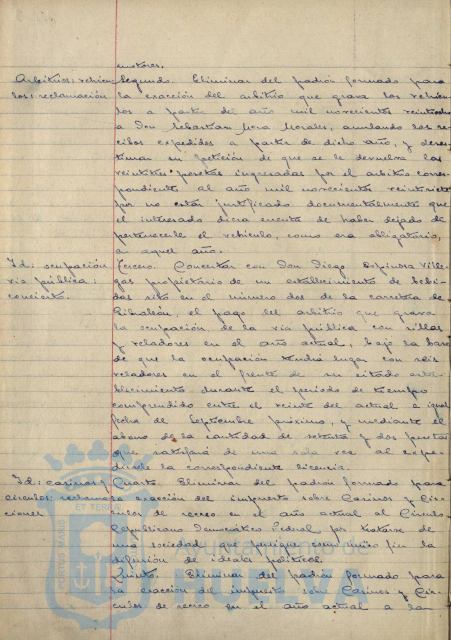 motores.
Arbitrios: vehícu-
los: reclamación
Segundo. Eliminar del padrón formado para
la exacción del arbitrio que grava los vehícu-
los a partir del año mil novecientos veintiocho
a Don Sebastian Mora Morales, anulando los re-
cibos expedidos a partir de dicho año, y deses-
timan su petición de que se le devuelva las
veintitres pesetas ingresadas por el arbitrio corres-
pondiente al año mil novecientos veintisiete
por no estar justificado documentalmente que
el interesado diera cuenta de haber dejado de
pertenecerle el vehículo, como era obligatorio,
en aquel año.
Id: ocupación
vía pública:
concierto.
Tercero. Concertar con Don Diego Espinosa Ville-
gas propietario de un establecimiento de bebi-
das sito en el número dos de la carretera de
Gibraleón, el pago del arbitrio que grava
la ocupación de la vía pública con sillas
y veladores en el año actual, bajo la base
de que la ocupación tendrá lugar con seis
veladores en el frente de su citado esta-
blecimiento durante el periodo de tiempo
comprendido entre el veinte del actual a igual
fecha de Septiembre próximo, y mediante el
abono de la cantidad de setenta y dos pesetas
que satisfará de una sola vez al expe-
dirsele la correspondiente licencia.
Id: casinos y
círculos: reclama-
ciones
Cuarto. Eliminar del padrón formado para
la exacción del impuesto sobre Casinos y Cír-
culos de recreo en el año actual al Círculo
Republicano Democrático Federal por tratarse de
una sociedad que persigue como único fin la
difusión de ideales políticos.
Quinto. Eliminar del padrón formado para
la exacción del impuesto sobre Casinos y Cír-
culos de recreo en el año actual a la
Ayuntamiento de
HUELVA